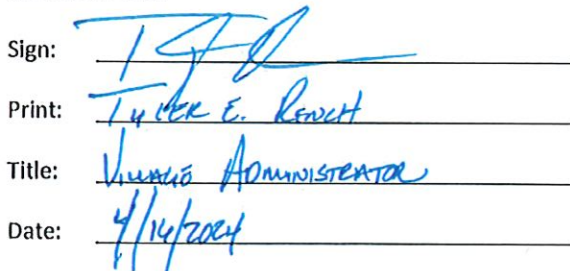 Sign:
Print: TYLER E. RENCH
Title: VILLAGE ADMINISTRATOR
Date: 4/14/2024